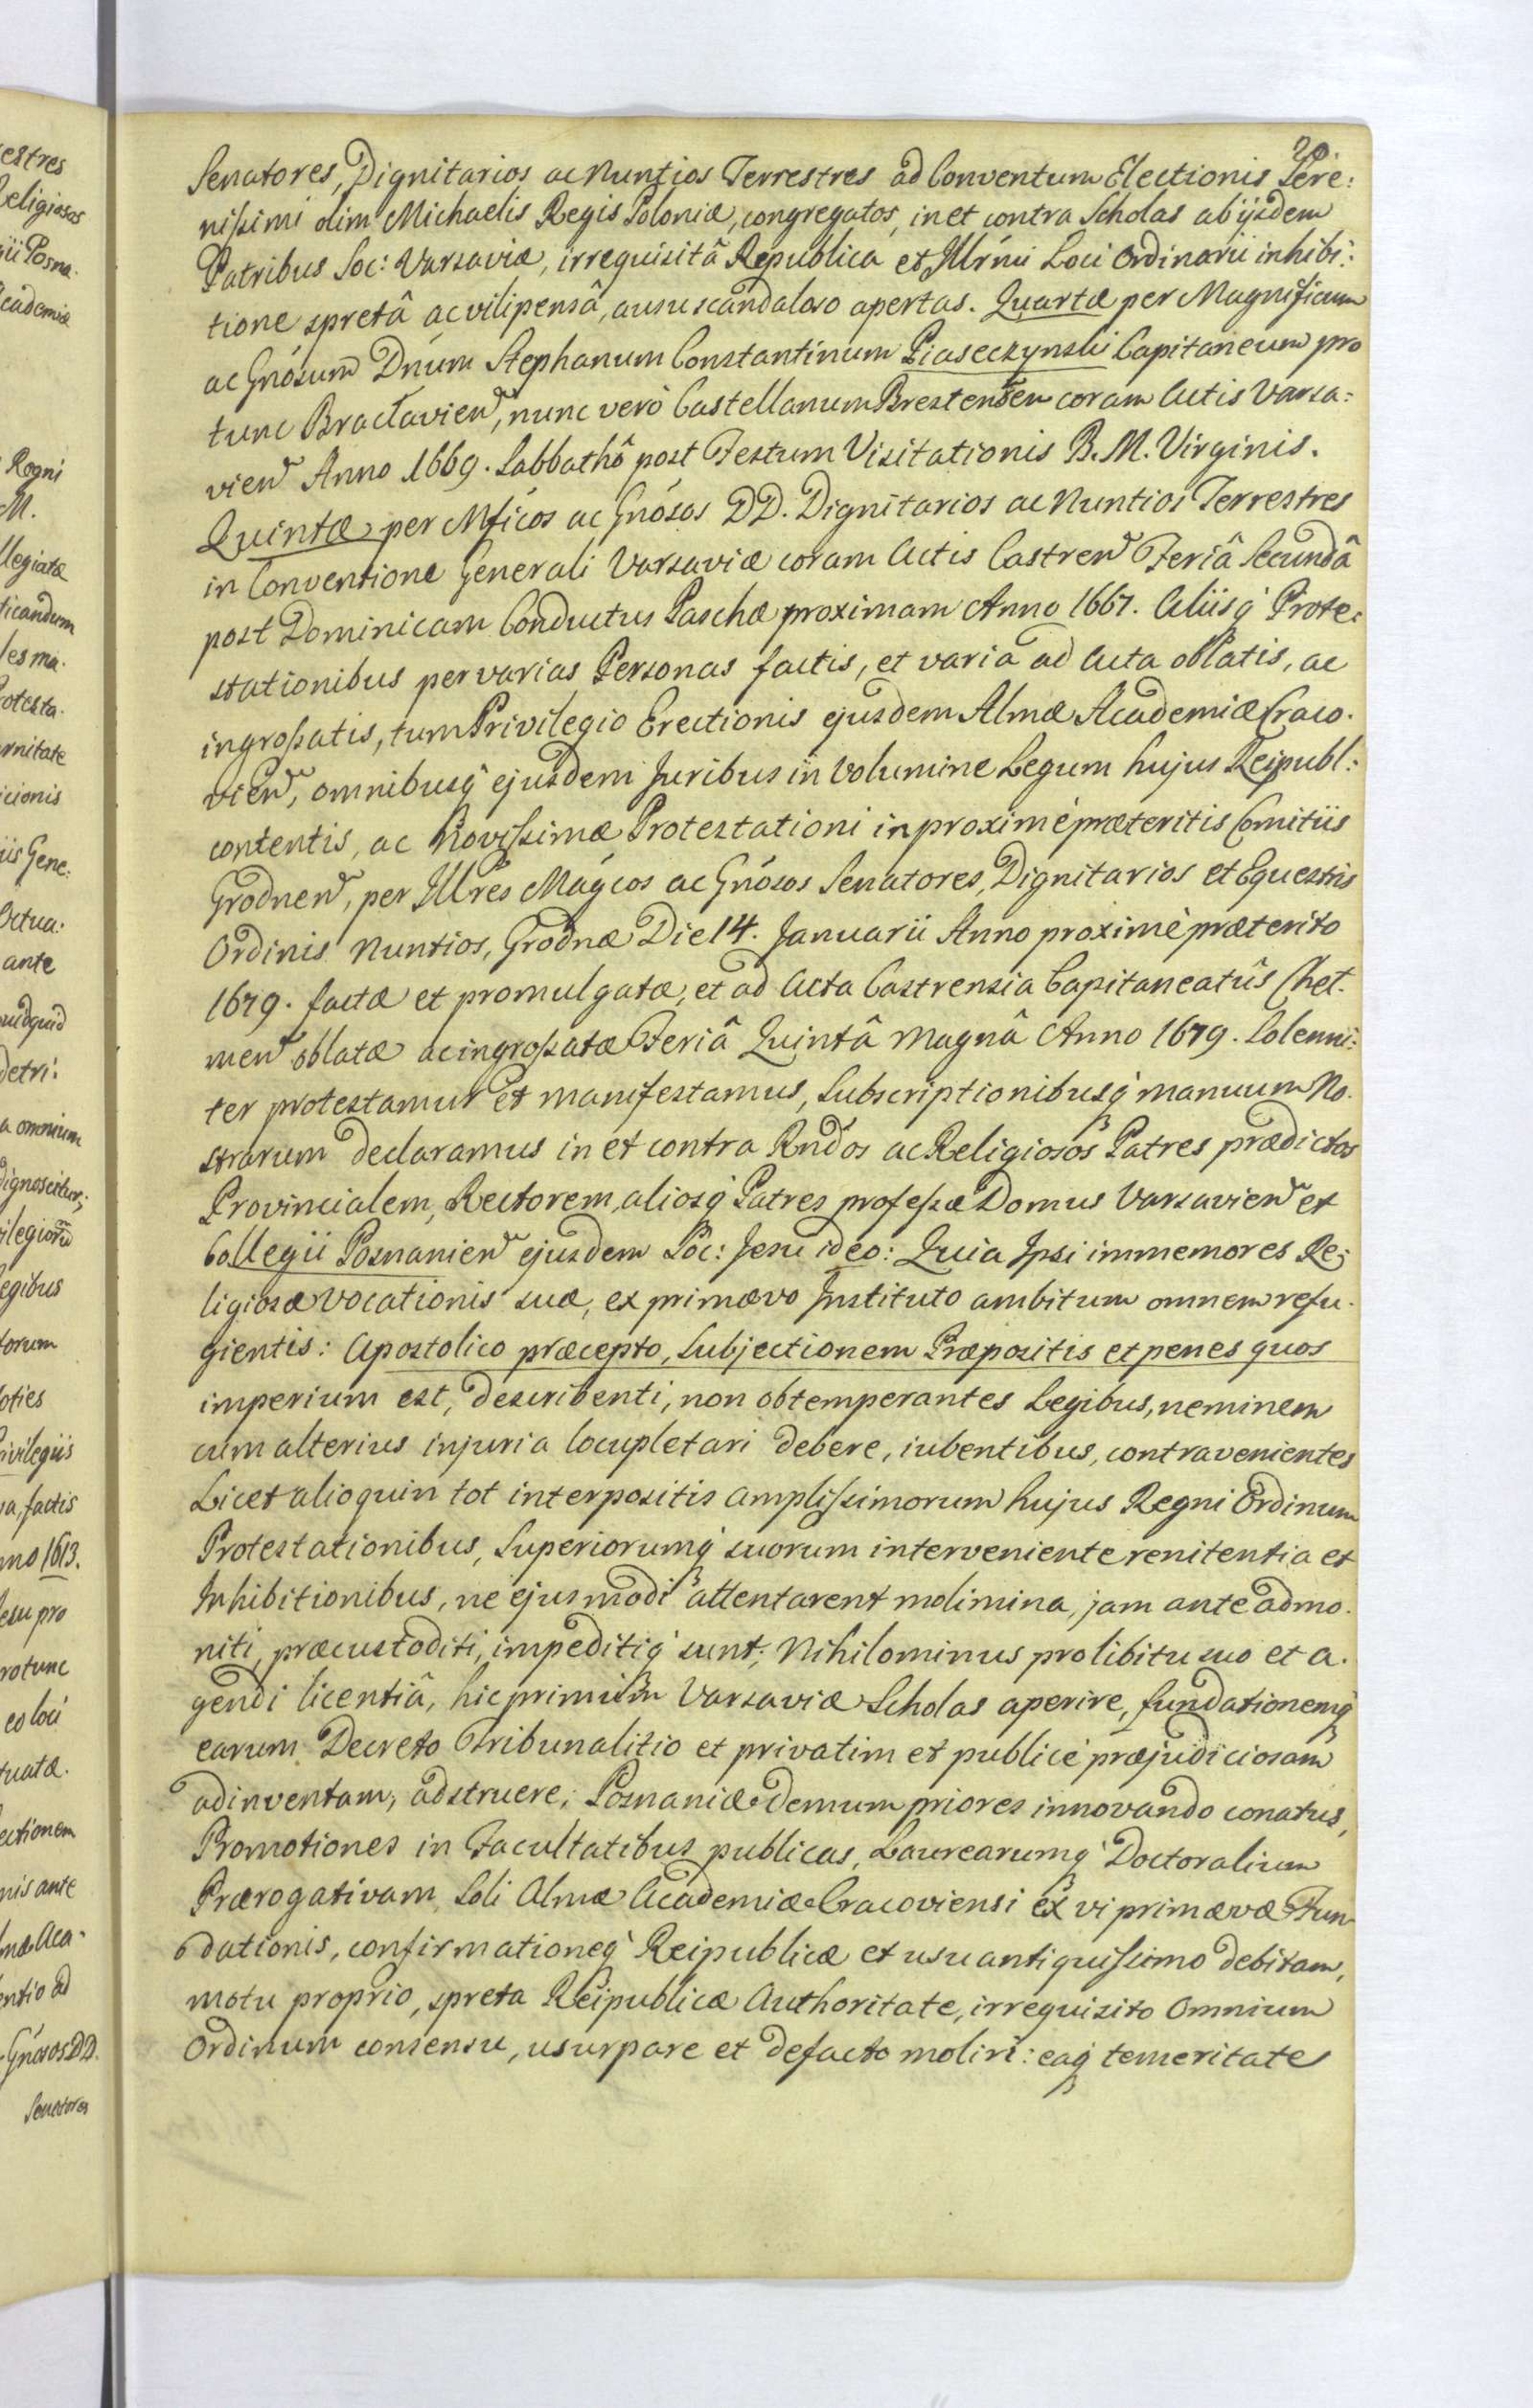 estres
Religiosos
ii Posna.
cademiæ
Regni
M.
llegiatæ
ficandum
les ma.
rotesta.
rnitate
icionis
iis Gene:
Octua.
ante
uidquid
detri:
a omnium
dignoscitur;
egibus
torum
oties
rivilegiis
va, factis
nno 1613.
Jesu pro
rotunc
eo loci
tuatæ.
ectionem
nis ante
mæ Aca-
entio ad
Gnósos DD.
Senatores
20
Senatores, Dignitarios ac Nuntios Terrestres ad Conventum Electionis Sere:
nissimi olim Michaelis Regis Poloniæ, congregatos, in et contra Scholas ab ijsdem
Patribus Soc: Varsaviæ, irrequisitâ Republica et Illrńi Loci Ordinarii inhibi:
tione spretâ ac vilipensâ, ausu scandaloso apertas. Quartæ per Magnificum
ac Gnósum Dnúm Stephanum Constantinum Piaseczynski Capitaneum pro
tunc Braclavień, nunc verò Castellanum Brestensem coram Actis Varsa:
vień Anno 1669. Sabbathô post Festum Visitationis B. M. Virginis.
Quintæ per Mficos ac Gnósos DD. Dignitarios ac Nuntios Terrestres
in Conventione Generali Varsaviæ coram Actis Castreń Feriâ Secundâ
post Dominicam Conductus Paschæ proximam Anno 1667. Aliisq́ Prote:
stationibus per varias Personas factis, et varia ad Acta oblatis, ac
ingrossatis, tum Privilegio Erectionis ejusdem Almæ Academiæ Craco.
vień, omnibusq́ ejusdem Juribus in Volumine Legum hujus Reipubl:
contentis, ac Novissimæ Protestationi in proximè præteritis Comitiis
Grodneń, per Illres Mágcos ac Gnósos Senatores, Dignitarios et Equestris
Ordinis Nuntios, Grodnæ Die 14. Januarii Anno proximè præterito
1679. factæ et promulgatæ, et ad Acta Castrensia Capitaneatûs Chel.
meń oblatæ ac ingrossatæ Feriâ Quintâ Magnâ Anno 1679. Solenni:
ter protestamur et manifestamus, Subscriptionibusq́ manuum No.
strarum declaramus in et contra Rndós ac Religiosos Patres prædictos
Provincialem, Rectorem, aliosq́ Patres professæ Domus Varsavień et
Collegii Posnanień ejusdem Soc: Jesu ideo: Quia Ipsi immemores Re:
ligiosæ vocationis suæ, ex primævo Instituto ambitum omnem refu.
gientis: Apostolico præcepto, Subjectionem Præpositis et penes quos
imperium est, describenti, non obtemperantes Legibus, neminem
cum alterius injuria locupletari debere, iubentibus, contravenientes
Licet alioquin tot interpositis amplissimorum hujus Regni Ordinum
Protestationibus, Superiorumq́ suorum interveniente renitentia et
Inhibitionibus, ne ejusmodi attentarent molimina, jam ante admo.
niti, præcustoditi, impeditiq́ sunt; Nihilominus pro libitu suo et a.
gendi licentiâ, hic primùm Varsaviæ Scholas aperire, fundationemq́
earum Decreto Tribunalitio et privatim et publicè præjudiciosam
adinventam, adstruere; Posnaniæ demum priores innovando conatus,
Promotiones in Facultatibus publicas, Laurearumq́ Doctoralium
Prærogativam, Soli Almæ Academiæ Cracoviensi ex vi primævæ Fun
dationis, confirmationeq́ Reipublicæ et usu antiquissimo debitam,
motu proprio, spreta Reipublicæ Authoritate, irrequisito Omnium
Ordinum consensu, usurpare et defacto moliri: eaq́ temeritate